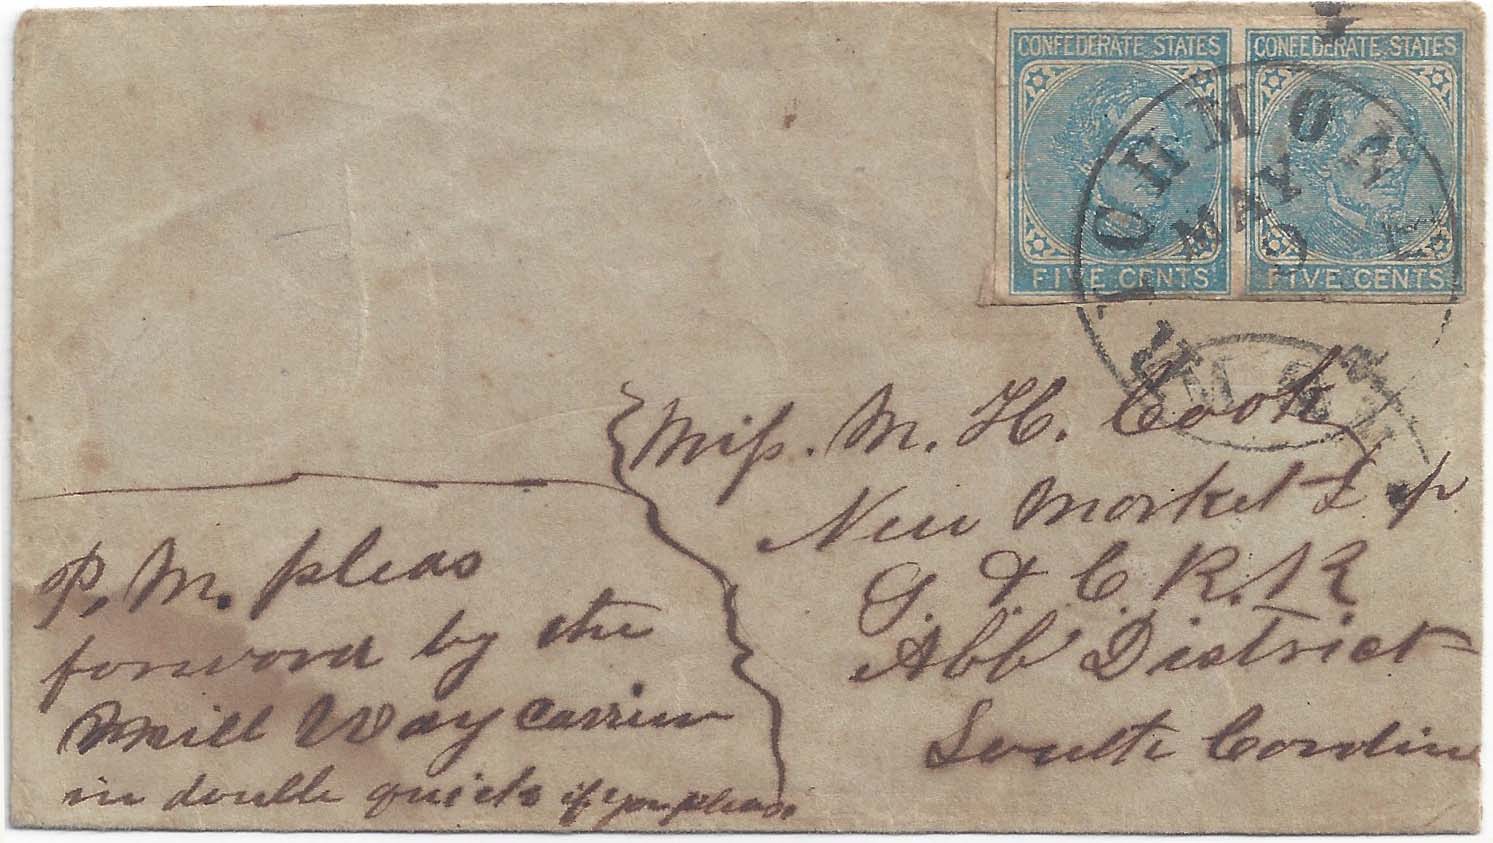 CONFEDERATE STATES CONFEDERATE STATES
FIVE CENTS FIVE CENTS
RICHMOND
MAY
Miss. M. H. Cook
New Market
G. & C. R. R
Abb District
South Carolina
P. M. pleas
forward by the
Mill Way Carrier
in double quick if you pleas